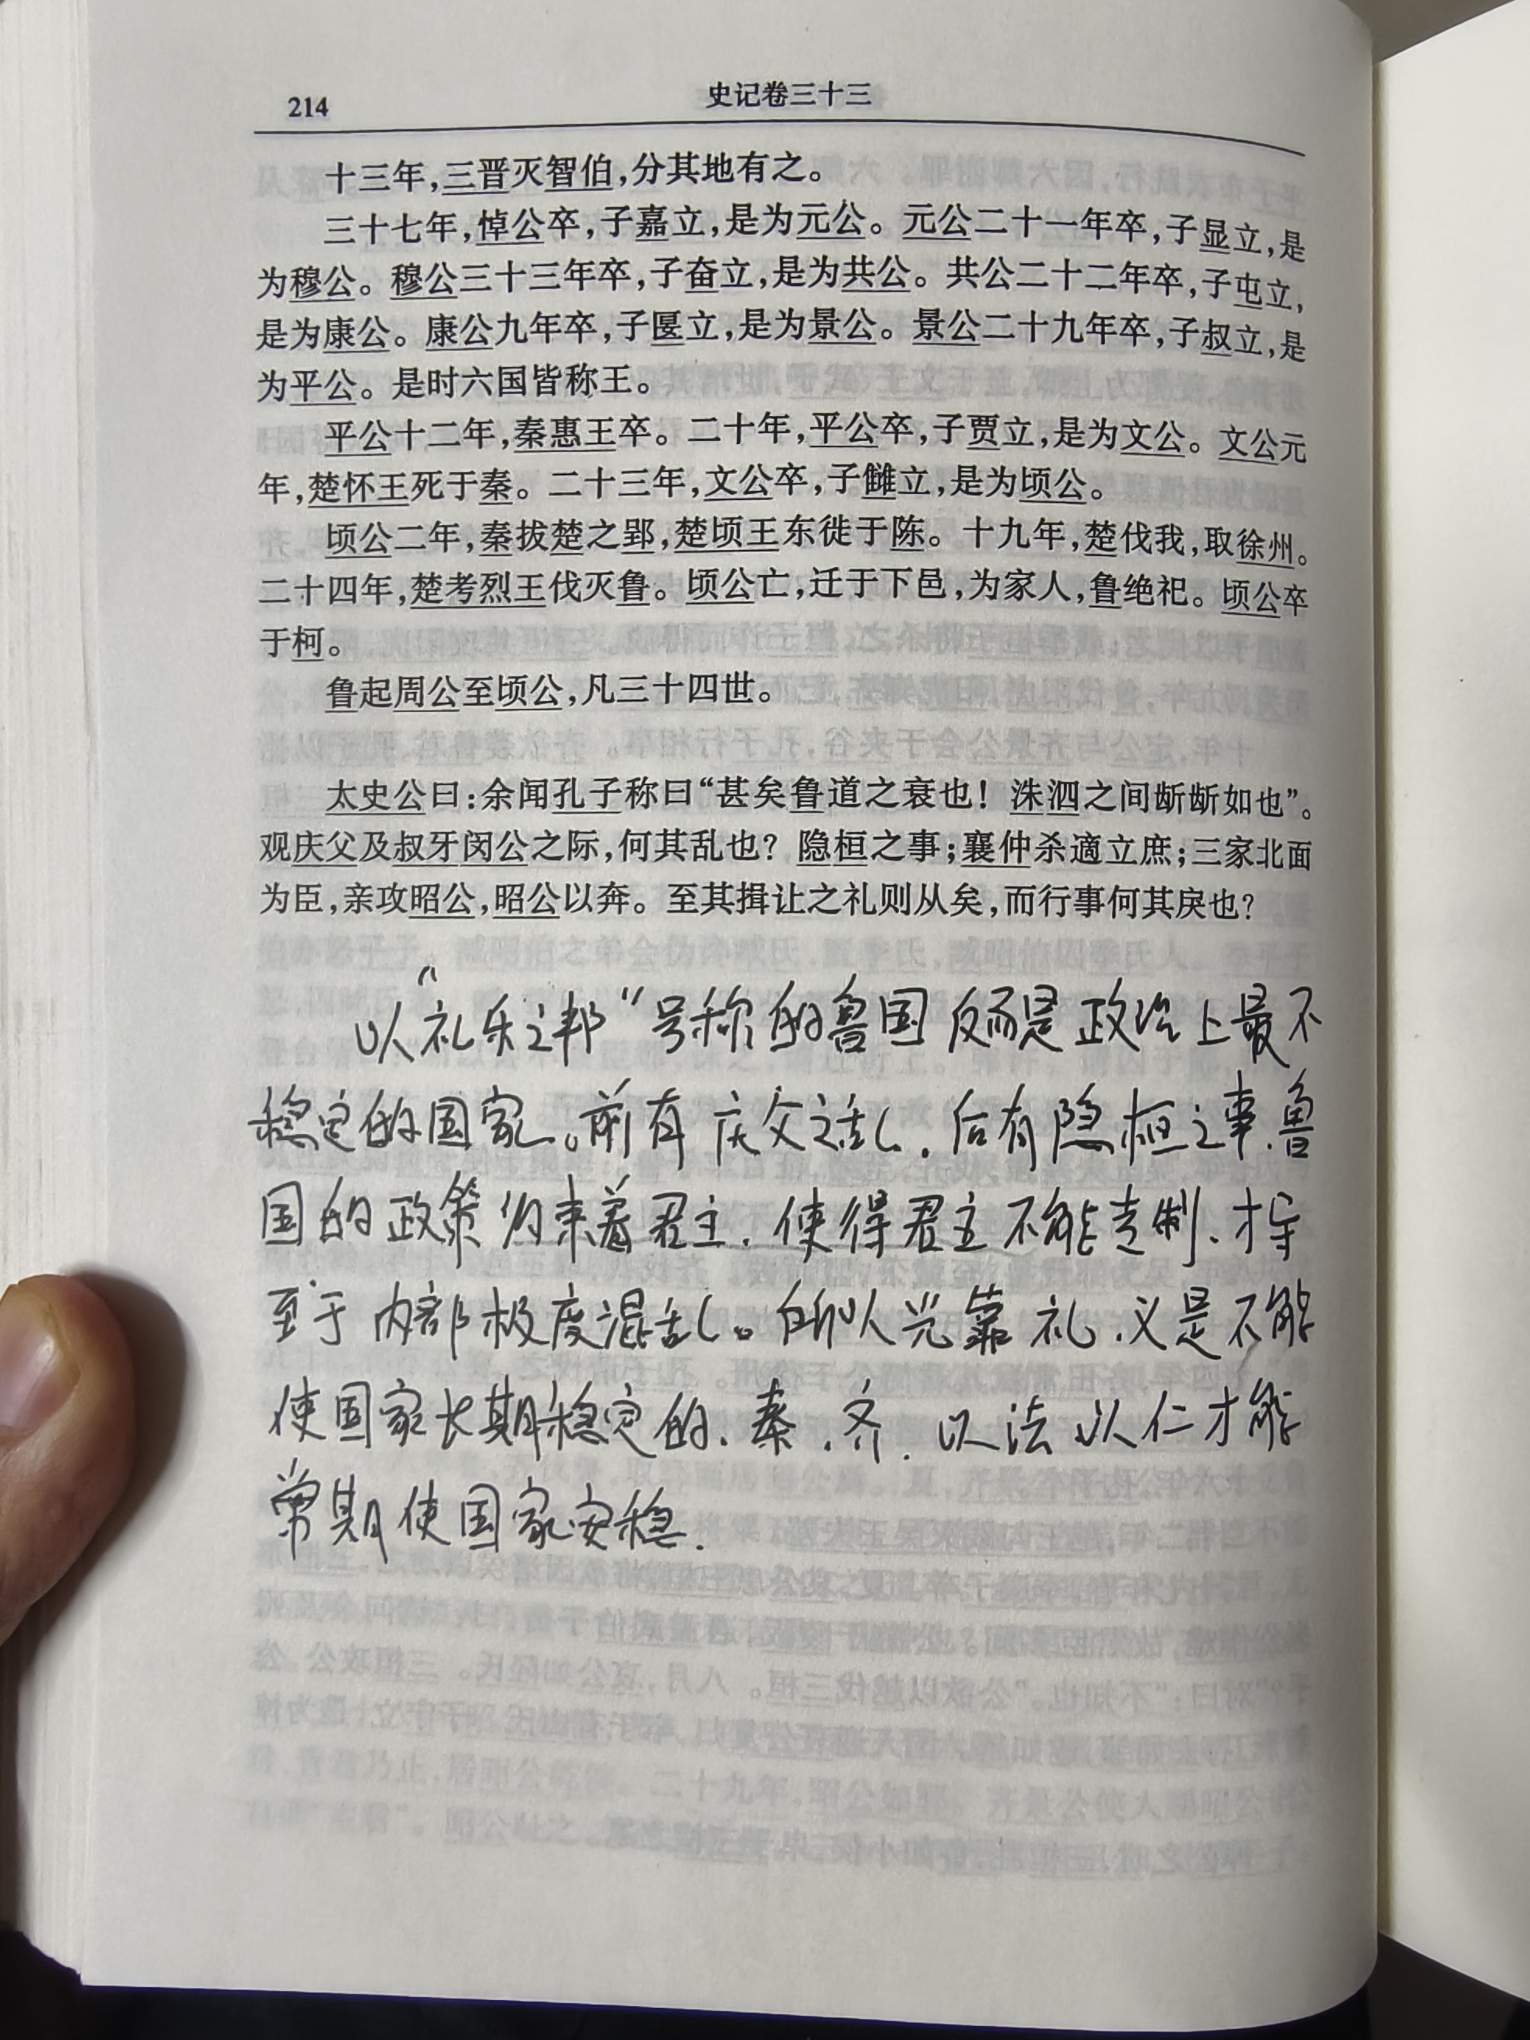 214
史记卷三十三
十三年，三晋灭智伯，分其地有之。
三十七年，悼公卒，子嘉立，是为元公。元公二十一年卒，子显立，是
为穆公。穆公三十三年卒，子奋立，是为共公。共公二十二年卒，子屯立，
是为康公。康公九年卒，子匽立，是为景公。景公二十九年卒，子叔立，是
为平公。是时六国皆称王。
平公十二年，秦惠王卒。二十年，平公卒，子贾立，是为文公。文公元
年，楚怀王死于秦。二十三年，文公卒，子雠立，是为顷公。
顷公二年，秦拔楚之郢，楚顷王东徙于陈。十九年，楚伐我，取徐州。
二十四年，楚考烈王伐灭鲁。顷公亡，迁于下邑，为家人，鲁绝祀。顷公卒
于柯。
鲁起周公至顷公，凡三十四世。
太史公曰：余闻孔子称曰“甚矣鲁道之衰也！洙泗之间龂龂如也”。
观庆父及叔牙闵公之际，何其乱也？隐桓之事；襄仲杀適立庶；三家北面
为臣，亲攻昭公，昭公以奔。至其揖让之礼则从矣，而行事何其戾也？
以“礼乐之邦”号称的鲁国反而是政治上最不
稳定的国家。前有庆父之乱，后有隐桓之事，鲁
国的政策约束着君主，使得君主不能专制，才导
至于内部极度混乱。所以光靠礼、义是不能
使国家长期稳定的，秦、齐，以法以仁才能
常期使国家安稳．